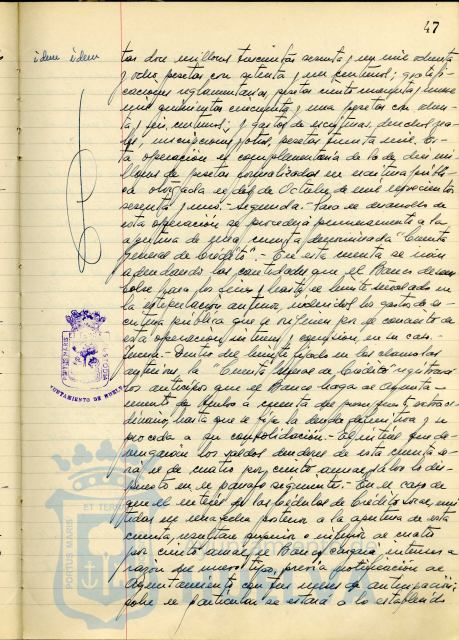 47
idem idem
tas doce millones trescientas sesenta y un mil ochenta
y ocho pesetas con setenta y un centimos; gratifi-
caciones reglamentarias, pesetas ciento cuarenta y nueve
mil quinientas cincuenta y una pesetas con ochen-
ta y seis centimos; y gastos de escrituras, derechos
inscripciones y otros, pesetas mil. Es-
ta operación es complementaria de la de diez mi-
llones de pesetas formalizada en escritura públi-
ca otorgada el de Octubre de mil novecientos
sesenta y uno.- Segunda.- Para el desarrollo de
esta operación se procederá primeramente a la
apertura de una cuenta denominada "Cuenta
General de Crédito".- En esta cuenta se irán
adeudando las cantidades que el Banco desem-
bolse para los fines y hasta el límite indicado en
la estipulación anterior, incluidos los gastos de es-
critura pública que se originen por la concesión de
esta operación, intereses y comisión, en su caso.
Dentro del límite fijado en las cláusulas
anteriores, la "Cuenta General de Crédito" registrará
los anticipos que el Banco haga al Ayunta-
miento de Huelva a cuenta del presupuesto extraor-
dinario, hasta que se fije la deuda definitiva y se
proceda a su consolidación.- El interés que de-
vengarán los saldos deudores de esta cuenta se-
rá el de cuatro por ciento anual, salvo lo dis-
puesto en el párrafo siguiente.- En el caso de
que el interés de las Cédulas de Crédito Local, emi-
tidas en una fecha posterior a la apertura de esta
cuenta, resultara superior o inferior al cuatro
por ciento anual, el Banco cargará intereses a
razón del nuevo tipo, previa notificación al
Ayuntamiento con tres meses de anticipación;
sobre el particular se estará a lo establecido
PORTUS MARIS ET TERRAE CUSTODIA
AYUNTAMIENTO DE HUELVA
PORTUS MARIS
ET TERRAE